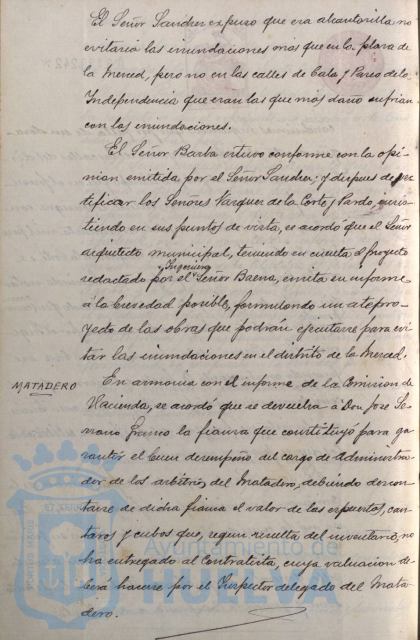 El Señor Sanchez expuso que esa alcantarilla no
evitaria las inundaciones más que en la plaza de
la Merced, pero no en las calles de Cala y Paseo de la
Independencia que eran las que más daño sufrian
con las inundaciones.
El Señor Barba estuvo conforme con la opi-
nion emitida por el Señor Sanchez; y despues de rec-
tificar los Señores Vazquez de la Corte y Pardo, insis-
tiendo en sus puntos de vista, se acordó que el Señor
arquitecto municipal, teniendo en cuenta el proyecto
Ingeniero
redactado por el Señor Baena, emita su informe
á la brevedad posible, formulando un antepro-
yecto de las obras que podrán ejecutarse para evi
tar las inundaciones en el distrito de la Merced.
MATADERO
En armonia con el informe de la Comision de
Hacienda, se acordó que se devuelva á Don José Se-
rrano Franco la fianza que constituyó para ga-
rantir el buen desempeño del cargo de Administra-
dor de los arbitrios del Matadero, debiendo descon-
tarse de dicha fianza el valor de las espuertas, cán-
taros y cubos que, segun resulta del inventario, no
ha entregado al Contratista, cuya valuacion de-
berá hacerse por el Inspector delegado del Mata-
dero.
Ayuntamiento de
HUELVA